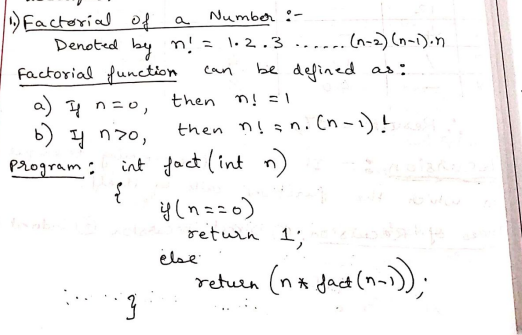 1) Factorial of a Number :-
Denoted by n! = 1.2.3 ...... (n-2)(n-1).n
Factorial function can be defined as:
a) If n=0, then n! = 1
b) If n>0, then n! = n.(n-1)!
Program: int fact(int n)
{
if(n==0)
return 1;
else
return (n * fact(n-1));
}